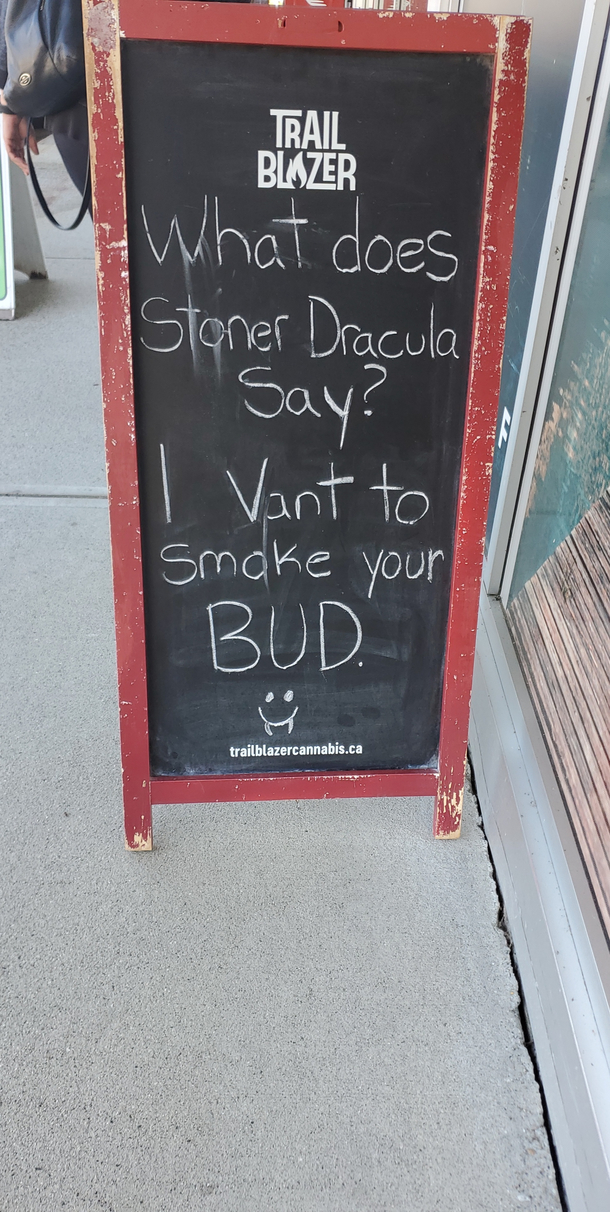 TRAIL
BLAZER
What does
Stoner Dracula
Say?
I Vant to
smoke your
BUD.
trailblazercannabis.ca
F